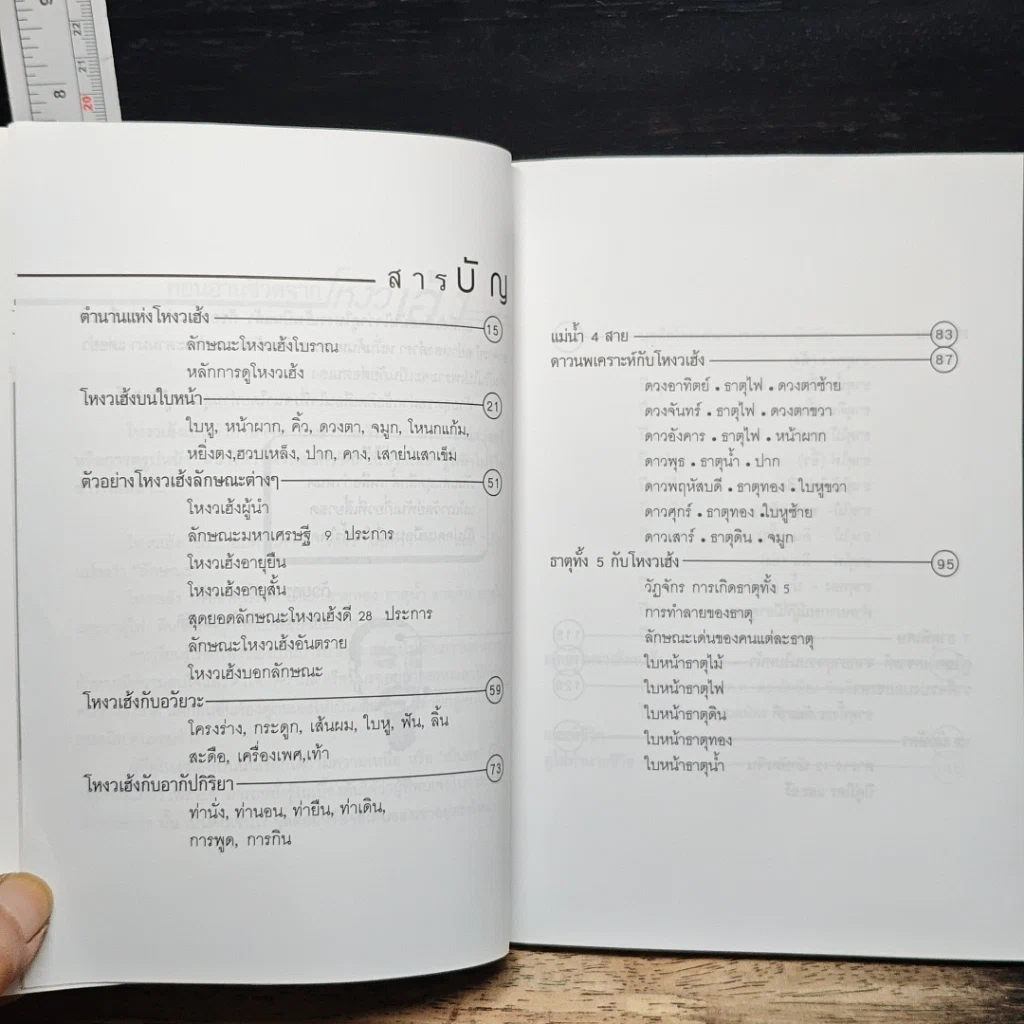 9
22
21
8
20
สารบัญ
ตำนานแห่งโหงวเฮ้ง 15
ลักษณะโหงวเฮ้งโบราณ
หลักการดูโหงวเฮ้ง
โหงวเฮ้งบนใบหน้า 21
ใบหู, หน้าผาก, คิ้ว, ดวงตา, จมูก, โหนกแก้ม,
หยิ่งตง,ฮวบเหล็ง, ปาก, คาง, เสาย่นเสาเข็ม
ตัวอย่างโหงวเฮ้งลักษณะต่างๆ 51
โหงวเฮ้งผู้นำ
ลักษณะมหาเศรษฐี 9 ประการ
โหงวเฮ้งอายุยืน
โหงวเฮ้งอายุสั้น
สุดยอดลักษณะโหงวเฮ้งดี 28 ประการ
ลักษณะโหงวเฮ้งอันตราย
โหงวเฮ้งบอกลักษณะ
โหงวเฮ้งกับอวัยวะ 59
โครงร่าง, กระดูก, เส้นผม, ใบหู, ฟัน, ลิ้น
สะดือ, เครื่องเพศ,เท้า
โหงวเฮ้งกับอากัปกิริยา 73
ท่านั่ง, ท่านอน, ท่ายืน, ท่าเดิน,
การพูด, การกิน
แม่น้ำ 4 สาย 83
ดาวนพเคราะห์กับโหงวเฮ้ง 87
ดวงอาทิตย์ • ธาตุไฟ • ดวงตาซ้าย
ดวงจันทร์ • ธาตุไฟ • ดวงตาขวา
ดาวอังคาร • ธาตุไฟ • หน้าผาก
ดาวพุธ • ธาตุน้ำ • ปาก
ดาวพฤหัสบดี • ธาตุทอง • ใบหูขวา
ดาวศุกร์ • ธาตุทอง •ใบหูซ้าย
ดาวเสาร์ • ธาตุดิน • จมูก
ธาตุทั้ง 5 กับโหงวเฮ้ง 95
วัฏจักร การเกิดธาตุทั้ง 5
การทำลายของธาตุ
ลักษณะเด่นของคนแต่ละธาตุ
ใบหน้าธาตุไม้
ใบหน้าธาตุไฟ
ใบหน้าธาตุดิน
ใบหน้าธาตุทอง
ใบหน้าธาตุน้ำ